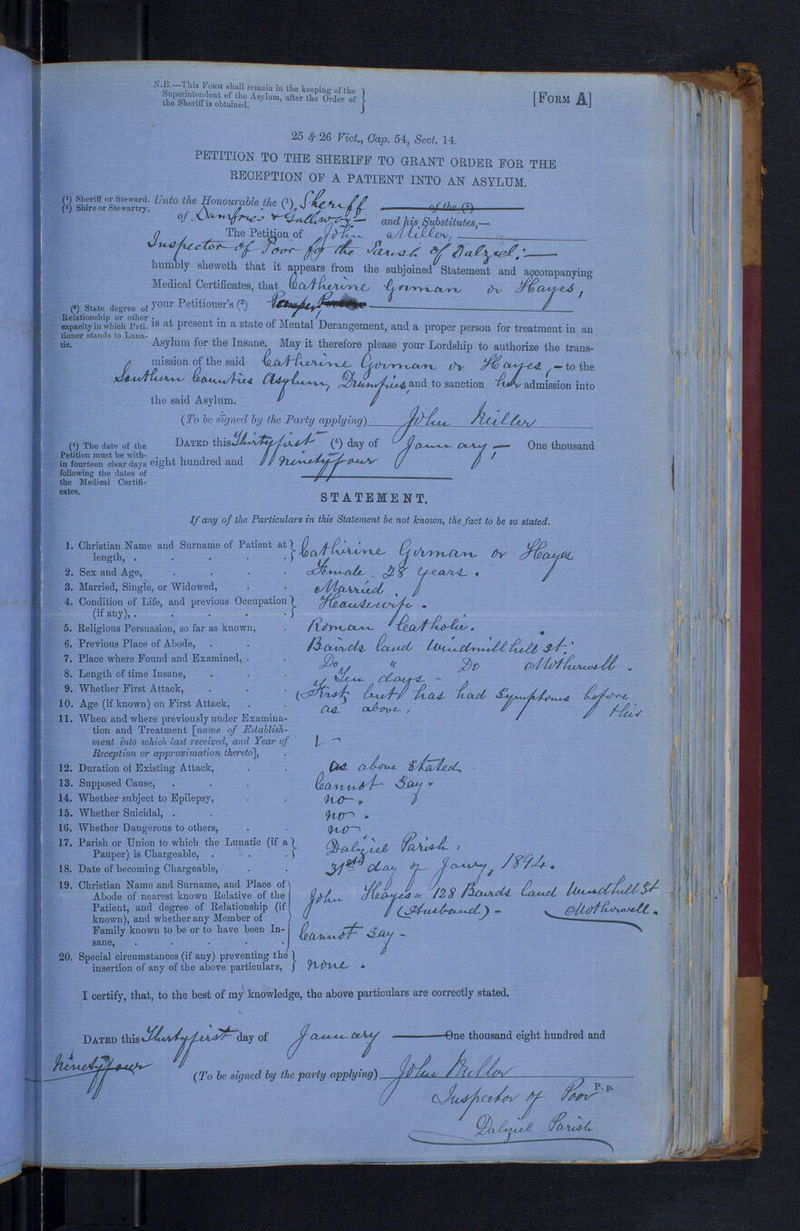 N.B.—This Form shall remain in the keeping of the
Superintendent of the Asylum, after the Order of
the Sheriff is obtained.
[Form A]
25 & 26 Vict., Cap. 54, Sect. 14.
PETITION TO THE SHERIFF TO GRANT ORDER FOR THE
RECEPTION OF A PATIENT INTO AN ASYLUM.
(1) Sheriff or Steward.
(2) Shire or Stewartry.
Unto the Honourable the (1) Sheriff of the (2)
of Dumfries & Galloway and his Substitutes,—
The Petition of John Miller,
Inspector of Poor for the Parish of Dalziel:—
humbly sheweth that it appears from the subjoined Statement and accompanying
Medical Certificates, that Catherine Gorman or Hayes,
(3) State degree of
Relationship or other
capacity in which Peti-
tioner stands to Luna-
tic.
your Petitioner's (3)
is at present in a state of Mental Derangement, and a proper person for treatment in an
Asylum for the Insane. May it therefore please your Lordship to authorize the trans-
mission of the said Catherine Gorman or Hayes,— to the
Southern Counties Asylum, Dumfries and to sanction her admission into
the said Asylum.
(To be signed by the Party applying) John Miller
(4) The date of the
Petition must be with-
in fourteen clear days
following the dates of
the Medical Certifi-
cates.
DATED this Thirty first (4) day of January — One thousand
eight hundred and ninety four
STATEMENT.
If any of the Particulars in this Statement be not known, the fact to be so stated.
1. Christian Name and Surname of Patient at
length, . Catherine Gorman or Hayes
2. Sex and Age, Female 28 years.
3. Married, Single, or Widowed, Married.
4. Condition of Life, and previous Occupation
(if any), . Housewife.
5. Religious Persuasion, so far as known, Roman Catholic.
6. Previous Place of Abode, Bairds land Windmillhill St.
7. Place where Found and Examined, . Do " Do Motherwell.
8. Length of time Insane, Ten days -
9. Whether First Attack, (First, but has had symptoms before
this
10. Age (if known) on First Attack, as above.
11. When and where previously under Examina-
tion and Treatment [name of Establish-
ment into which last received, and Year of
Reception or approximation thereto],
12. Duration of Existing Attack, as above stated
13. Supposed Cause, Cannot say.
14. Whether subject to Epilepsy, no.
15. Whether Suicidal, . no.
16. Whether Dangerous to others, no
17. Parish or Union to which the Lunatic (if a
Pauper) is Chargeable, . Dalziel Parish.
18. Date of becoming Chargeable, 31st day of Janry, 1894.
19. Christian Name and Surname, and Place of
Abode of nearest known Relative of the
Patient, and degree of Relationship (if
known), and whether any Member of
Family known to be or to have been In-
sane, .
John Hayes = 128 Bairds Land Windhill St
(Husband) - Motherwell.
Cannot say -
20. Special circumstances (if any) preventing the
insertion of any of the above particulars, None.
I certify, that, to the best of my knowledge, the above particulars are correctly stated.
DATED this Thirty first day of January — One thousand eight hundred and
ninety four
(To be signed by the party applying) John Miller
Inspector of Poor P. p.
Dalziel Parish